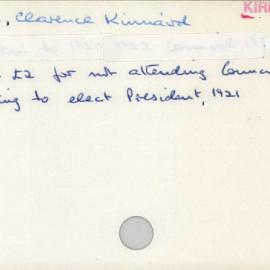 KIR
, Clarence Kinnaird
to 1922 1922 Council,
£2 for not attending Counc
ing to elect President, 1921